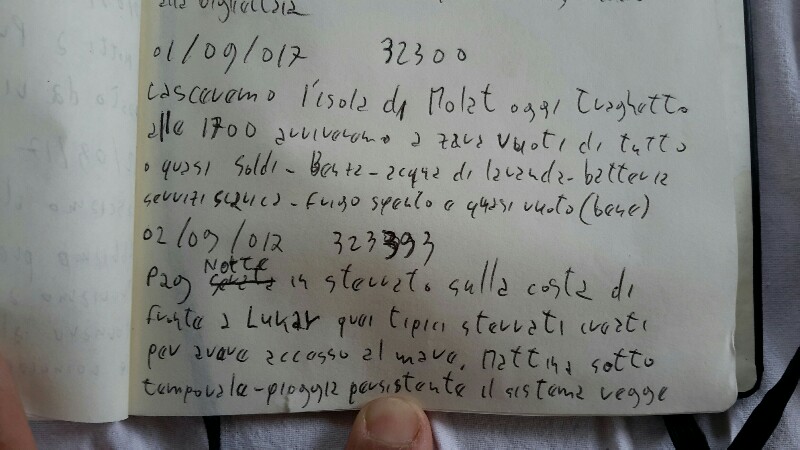 alla biglietteria
01/09/017 32300
Lasceremo l'isola di Molat oggi traghetto
alle 1700 arriveremo a zara vuoti di tutto
o quasi soldi - Benza - acqua di lavanda - batteria
servizi scarica - frigo spento e quasi vuoto (bene)
02/09/017
Pag Notte in sterrato sulla costa di
fronte a Lukar quei tipici sterrati creati
per avere accesso al mare. Mattina sotto
temporale - pioggia persistente il sistema regge